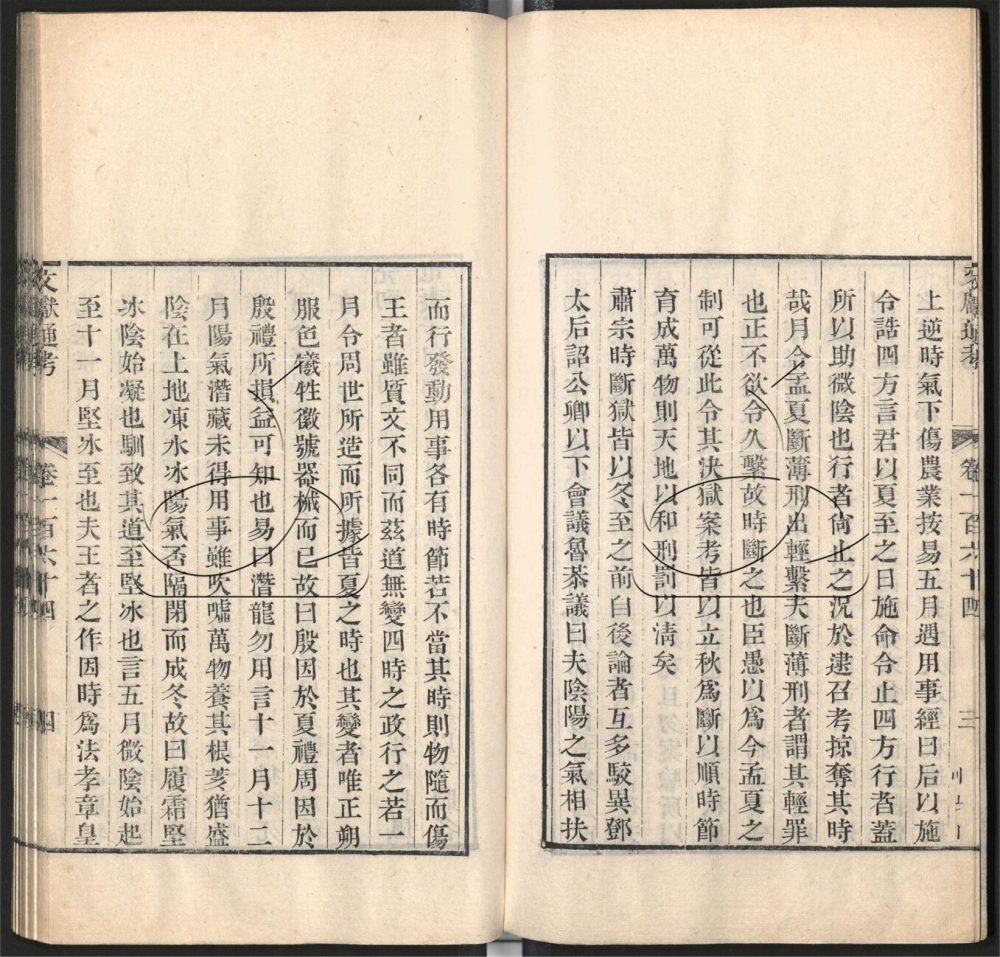 上逆時氣下傷農業按易五月遇用事經曰后以施
令誥四方言君以夏至之日施命令止四方行者蓋
所以助微陰也行者尙止之況於逮召考掠奪其時
哉月令孟夏斷薄刑出輕繫夫斷薄刑者謂其輕罪
也正不欲令久繫故時斷之也臣愚以爲今孟夏之
制可從此令其決獄案考皆以立秋爲斷以順時節
育成萬物則天地以和刑罰以淸矣
肅宗時斷獄皆以冬至之前自後論者互多駮異鄧
太后詔公卿以下會議魯恭議曰夫陰陽之氣相扶
文獻通考
卷一百六十四
三
而行發動用事各有時節若不當其時則物隨而傷
王者雖質文不同而茲道無變四時之政行之若一
月令周世所造而所據皆夏之時也其變者唯正朔
服色犧牲徽號器械而已故曰殷因於夏禮周因於
殷禮所損益可知也易曰潛龍勿用言十一月十二
月陽氣潛藏未得用事雖吹噓萬物養其根荄猶盛
陰在上地凍水冰陽氣否隔閉而成冬故曰履霜堅
冰陰始凝也馴致其道至堅冰也言五月微陰始起
至十一月堅冰至也夫王者之作因時爲法孝章皇
文獻通考
卷一百六十四
四